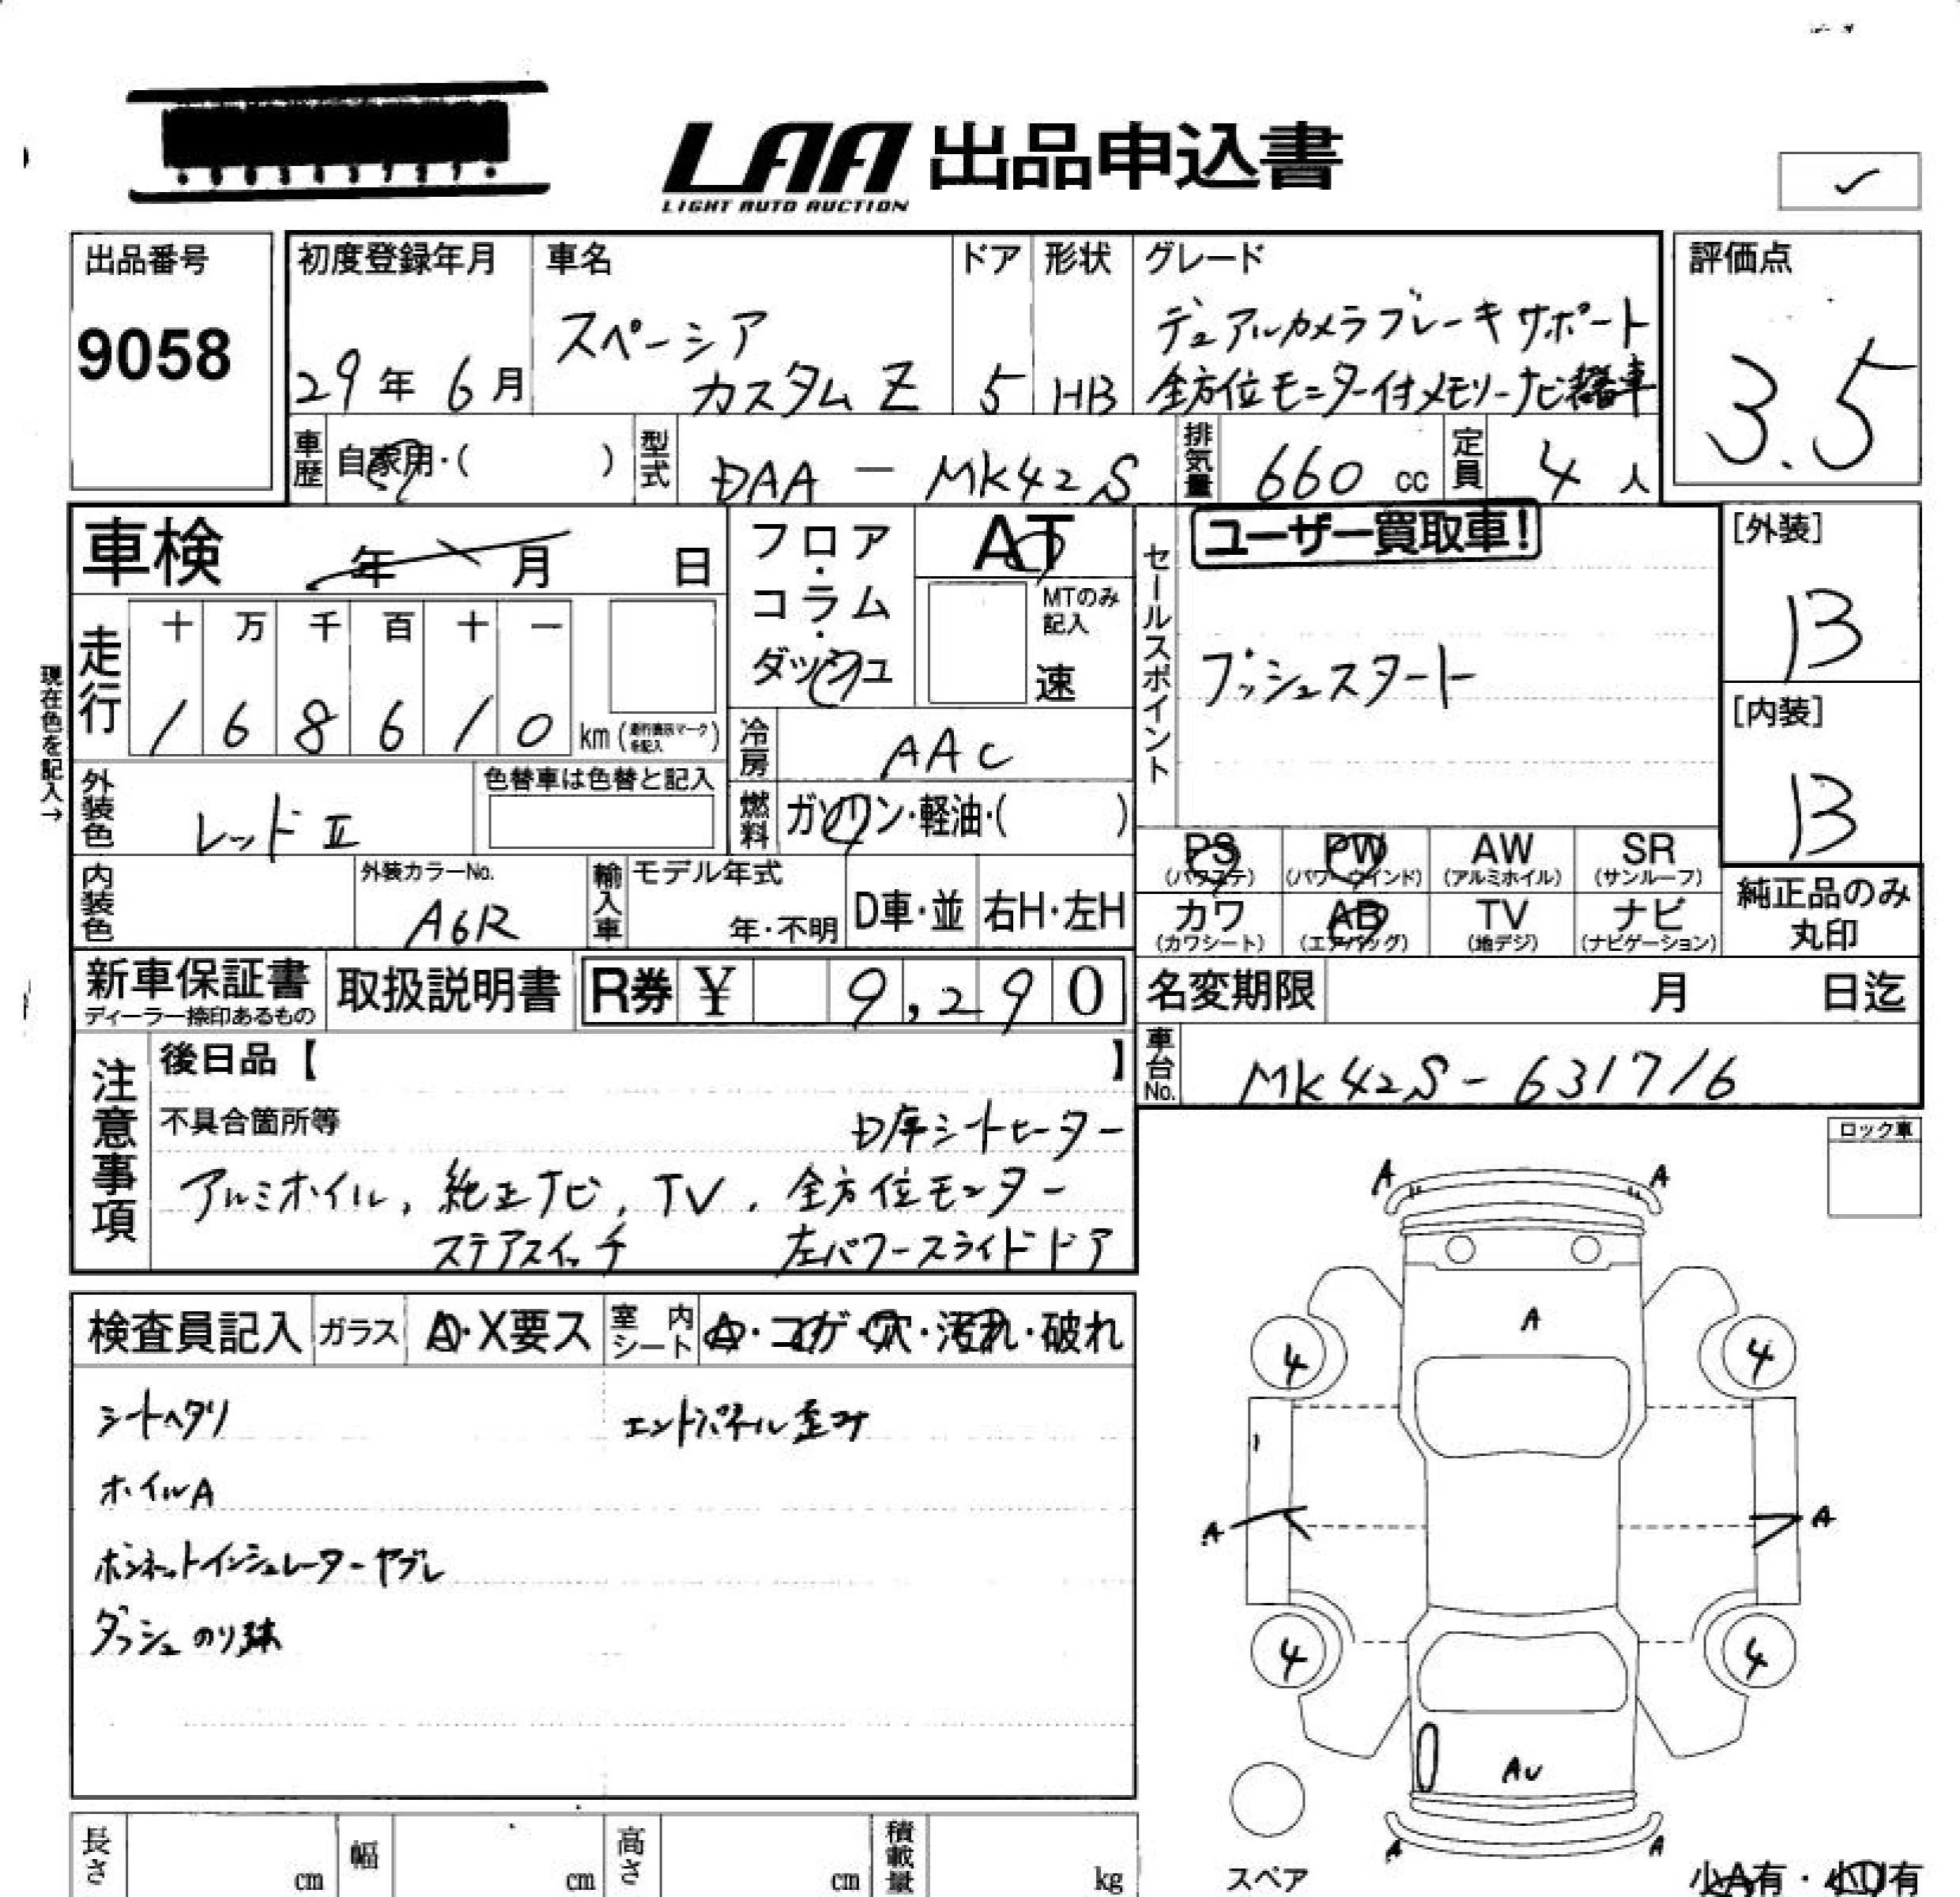 LAA 出品申込書
LIGHT AUTO AUCTION
出品番号
9058
初度登録年月
29年 6月
車名
スペーシア
カスタム Z
ドア
5
形状
HB
グレード
デュアルカメラブレーキサポート
全方位モニター付メモリーナビ搭載車
評価点
3.5
車歴
自家用・( )
型式
DAA - MK42S
排気量
660 cc
定員
4 人
車検 年 月 日
フロア・コラム・ダッシュ
AT
MTのみ記入
速
セールスポイント
ユーザー買取車!
プッシュスタート
[外装]
B
[内装]
B
現在色を記入→
走行
十 万 千 百 十 一
1 6 8 6 1 0 km
冷房
AAC
外装色
レッドⅡ
色替車は色替と記入
燃料
ガソリン・軽油・( )
PS (パワステ)
PW (パワーウインド)
AW (アルミホイル)
SR (サンルーフ)
カワ (カワシート)
AB (エアバッグ)
TV (地デジ)
ナビ (ナビゲーション)
純正品のみ
丸印
内装色
外装カラーNo.
A6R
輸入車
モデル年式
年・不明
D車・並
右H・左H
新車保証書
ディーラー捺印あるもの
取扱説明書
R券 ¥ 9,290
名変期限 月 日迄
車台No.
MK42S-631716
注意事項
後日品【 】
不具合箇所等
D席シートヒーター
アルミホイル, 純正ナビ, TV, 全方位モニター
ステアスイッチ 左パワースライドドア
ロック車
検査員記入
ガラス
A・X要ス
室内シート
A・コゲ・穴・汚れ・破れ
シートヘタリ
エンドパネル歪み
ホイルA
ボンネットインシュレーターヤブレ
ダッシュのり跡
A A
A
4 4
A A
4 4
AU
A A
スペア
小A有・小U有
長さ cm
幅 cm
高さ cm
積載量 kg